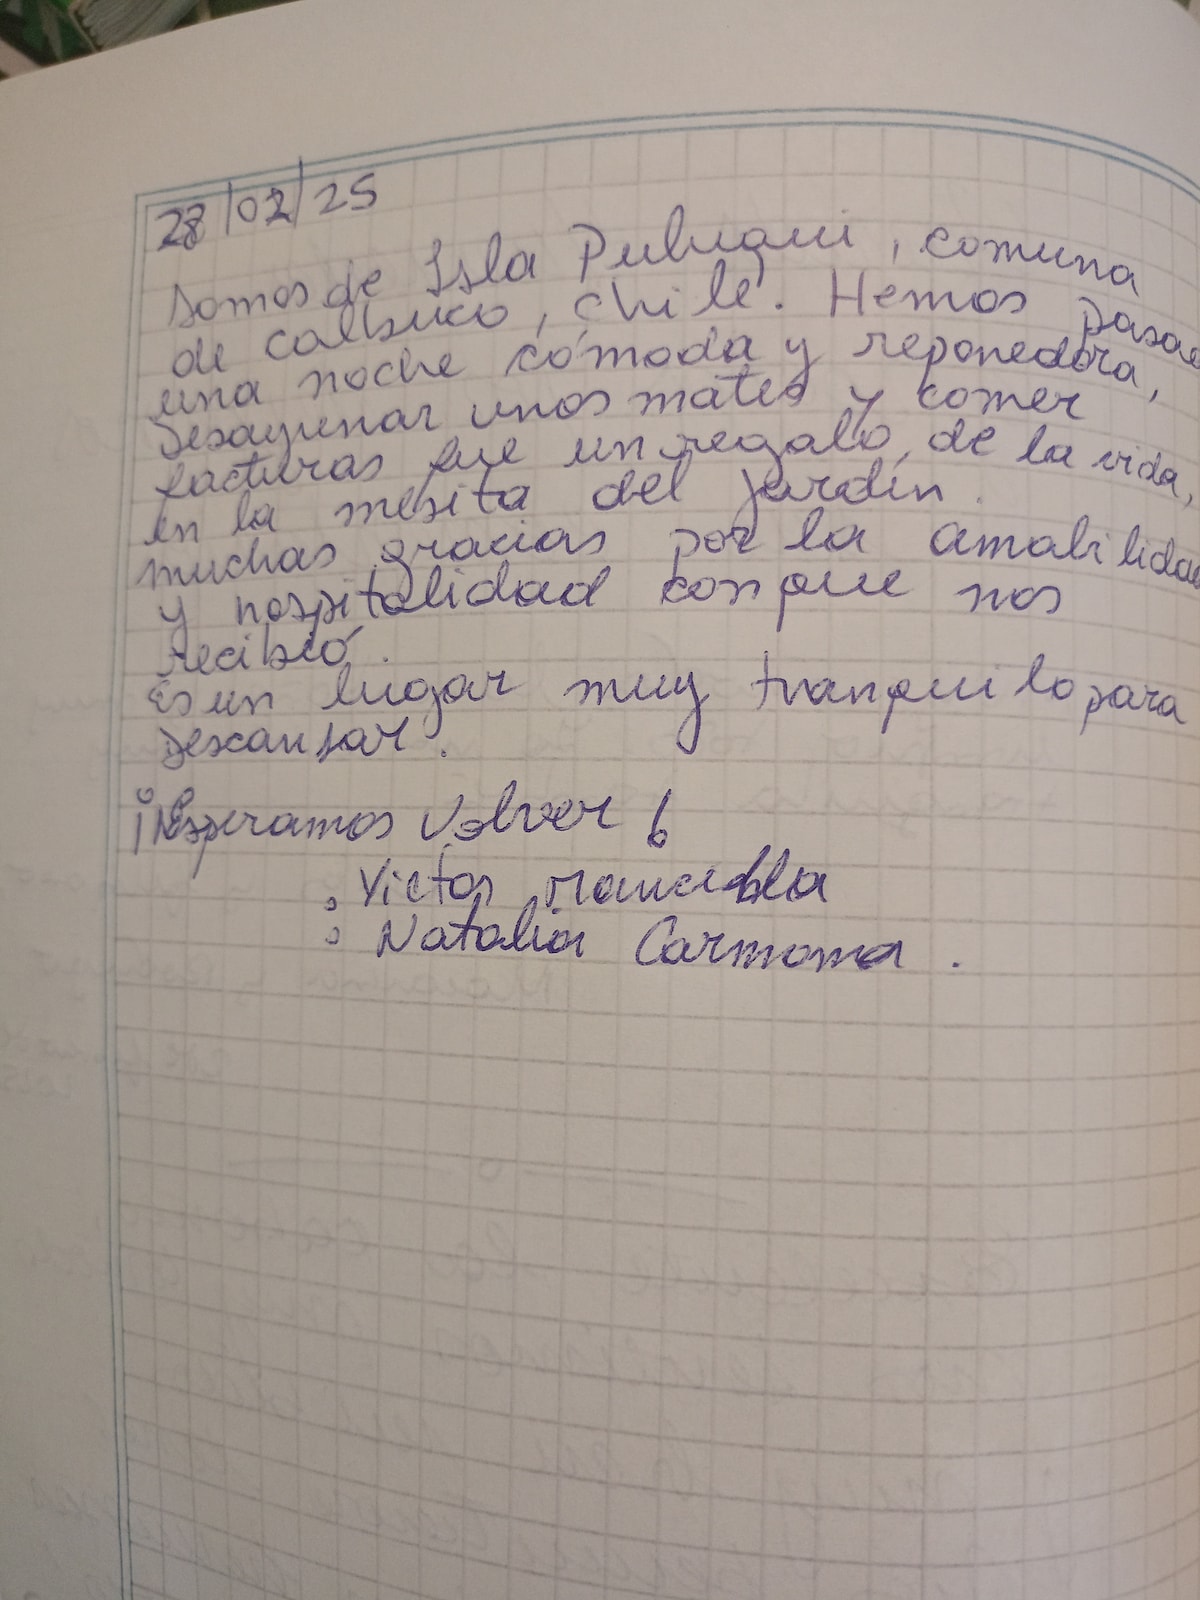 28/02/25
Somos de Isla Puluqui, comuna
de calbuco, chile. Hemos pasad
una noche cómoda y reponedora,
Desayunar unos mates y comer
facturas fue un regalo, de la vida,
en la mesita del jardín.
muchas gracias por la amabilidad
y hospitalidad con que nos
recibió.
Es un lugar muy tranquilo para
Descansar.
¡Esperamos Volver!
Victor Mancilla
Natalia Carmona.